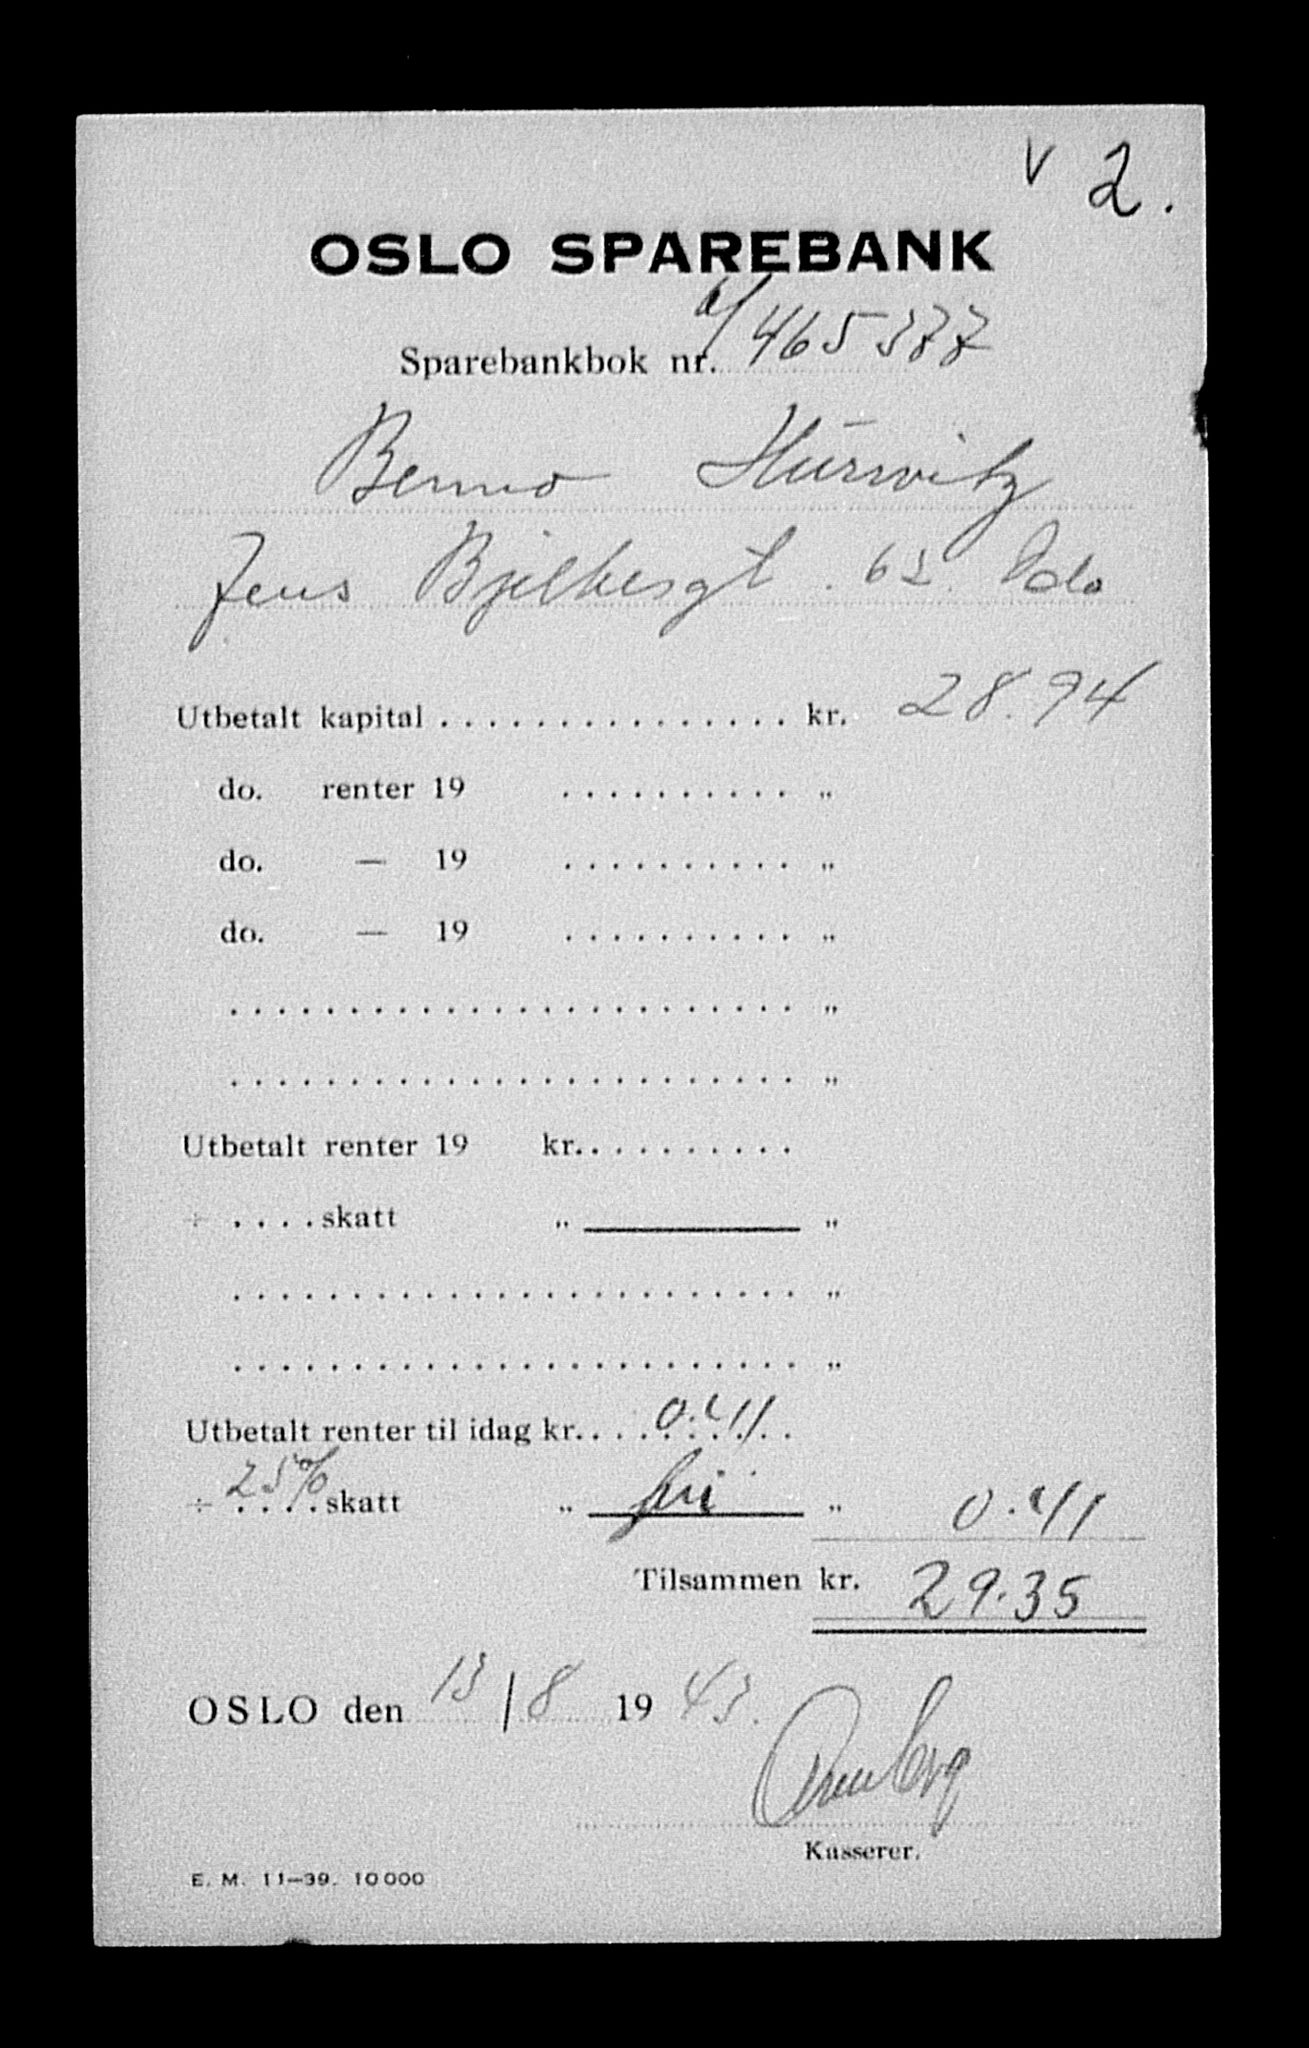 V 2.
OSLO SPAREBANK
Sparebankbok nr. 465377
Benno Hurwitz
Jens Bjelkesgt. 62 Oslo
Utbetalt kapital . . . . . . . . . . . . . . . kr. 28.94
do. renter 19 . . . . . . . . . . „
do. — 19 . . . . . . . . . . „
do. — 19 . . . . . . . . . . „
. . . . . . . . . . . . . . . . . . . . . . . . „
. . . . . . . . . . . . . . . . . . . . . . . . „
Utbetalt renter 19 kr. . . . . . . . . .
÷ . . . . skatt „ „
. . . . . . . . . . . . . . . . . . . . . . . . „
. . . . . . . . . . . . . . . . . . . . . . . . „
Utbetalt renter til idag kr. 0.41
÷ 25% skatt „ fri „ 0.41
Tilsammen kr. 29.35
OSLO den 13/8 1943.
Kasserer.
E. M. 11–39. 10 000